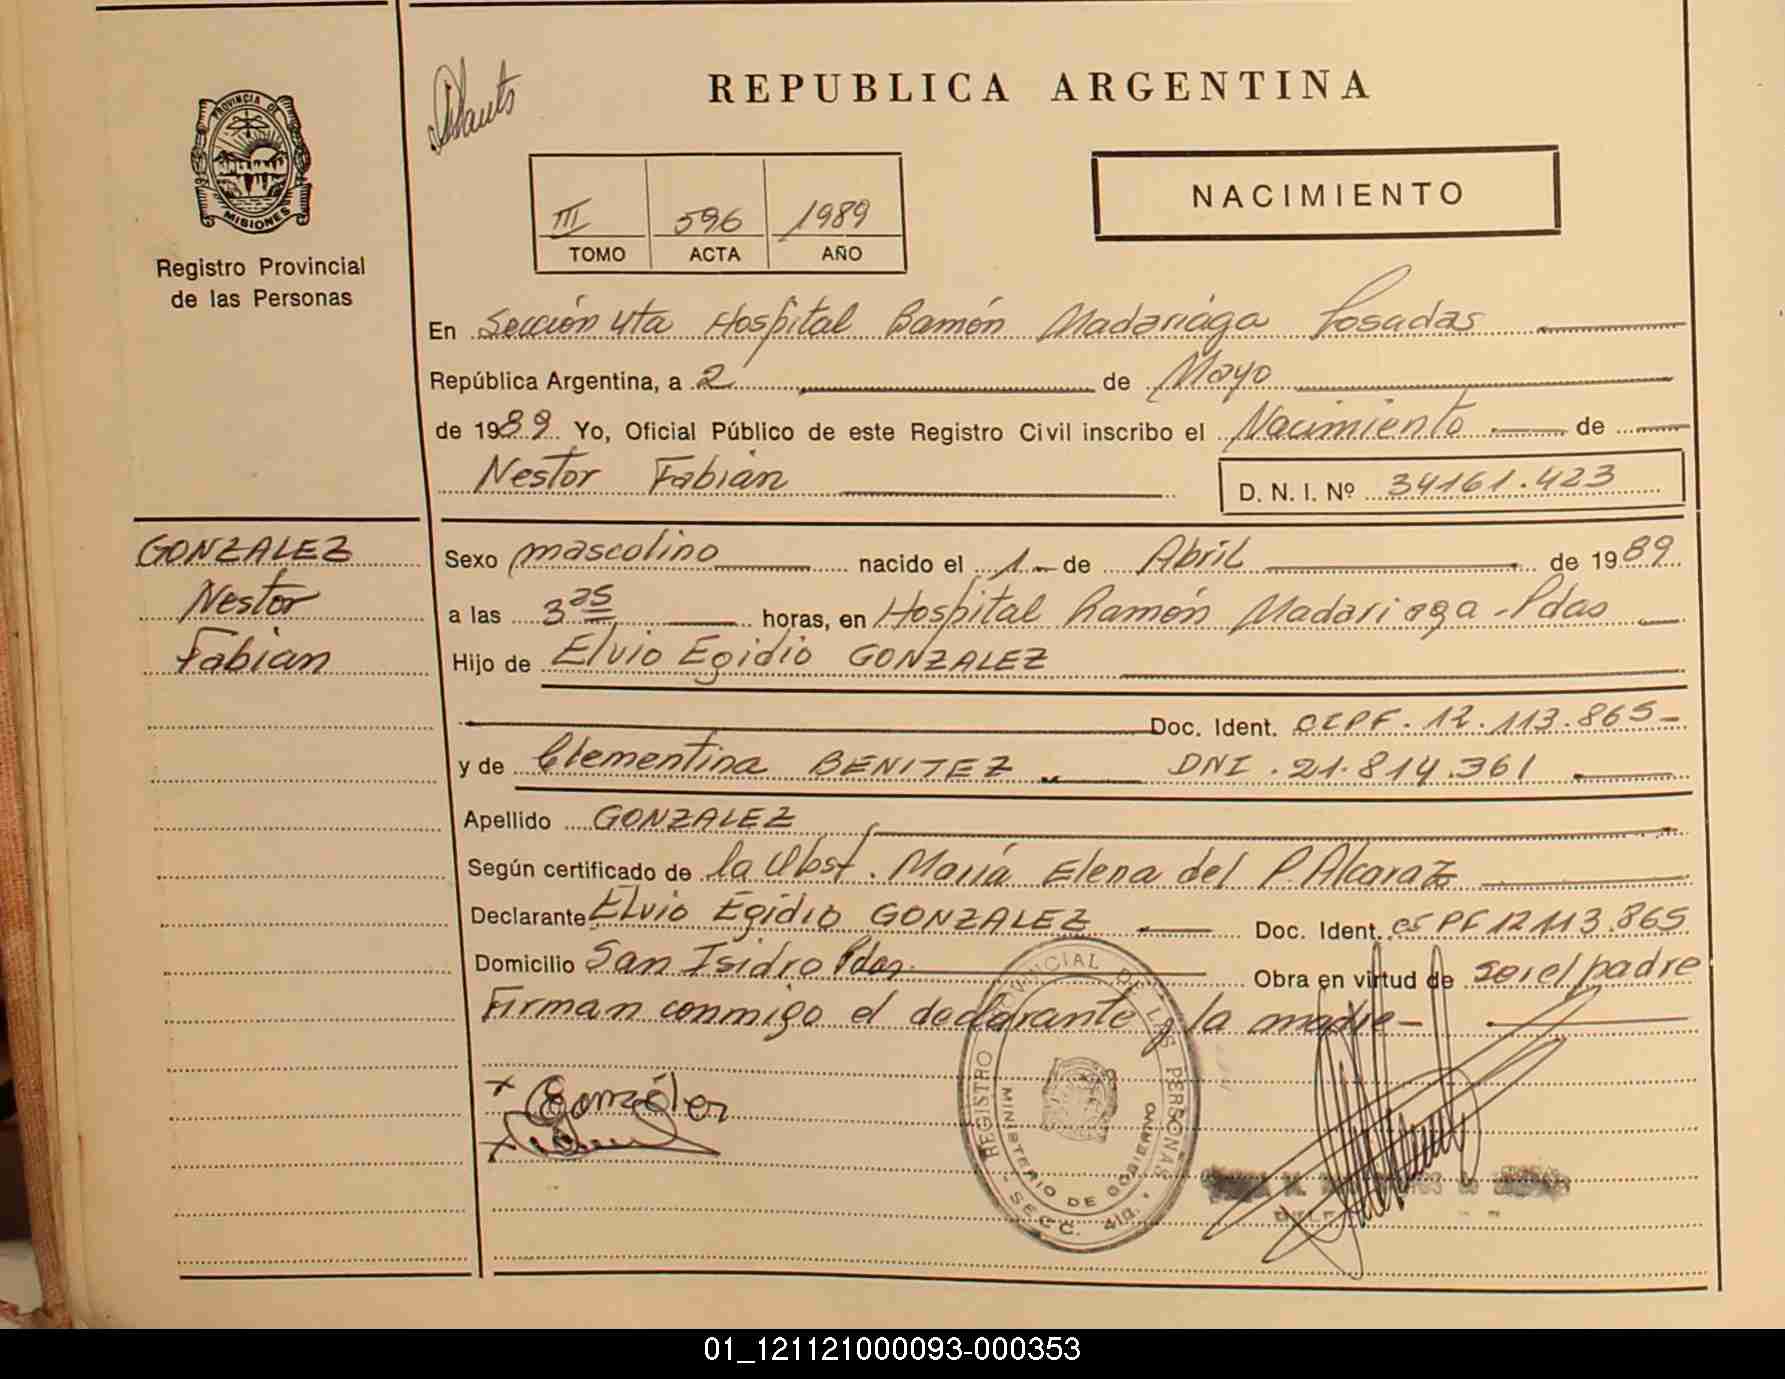 PROVINCIA DE
MISIONES
Registro Provincial
de las Personas
REPUBLICA ARGENTINA
III 596 1989
TOMO ACTA AÑO
NACIMIENTO
En Sección 4ta Hospital Ramón Madariaga Posadas
República Argentina, a 2 de Mayo
de 1989 Yo, Oficial Público de este Registro Civil inscribo el Nacimiento de
Nestor Fabián D. N. I. Nº 34161.423
GONZALEZ
Nestor
Fabian
Sexo mascolino nacido el 1 de Abril de 1989
a las 3 25 horas, en Hospital Ramón Madariaga - Pdas
Hijo de Elvio Egidio GONZALEZ
Doc. Ident. CIPF. 12.113.865
y de Clementina BENITEZ DNI. 21.814.361
Apellido GONZALEZ
Según certificado de la Obst. María Elena del P. Alcaraz
Declarante Elvio Egidio GONZALEZ Doc. Ident. PF 12113.865
Domicilio San Isidro Pdas. Obra en virtud de ser el padre
Firman conmigo el declarante y la madre
x González
REGISTRO PROVINCIAL DE LAS PERSONAS
MINISTERIO DE GOBIERNO
SECC. 4ta.
01_121121000093-000353